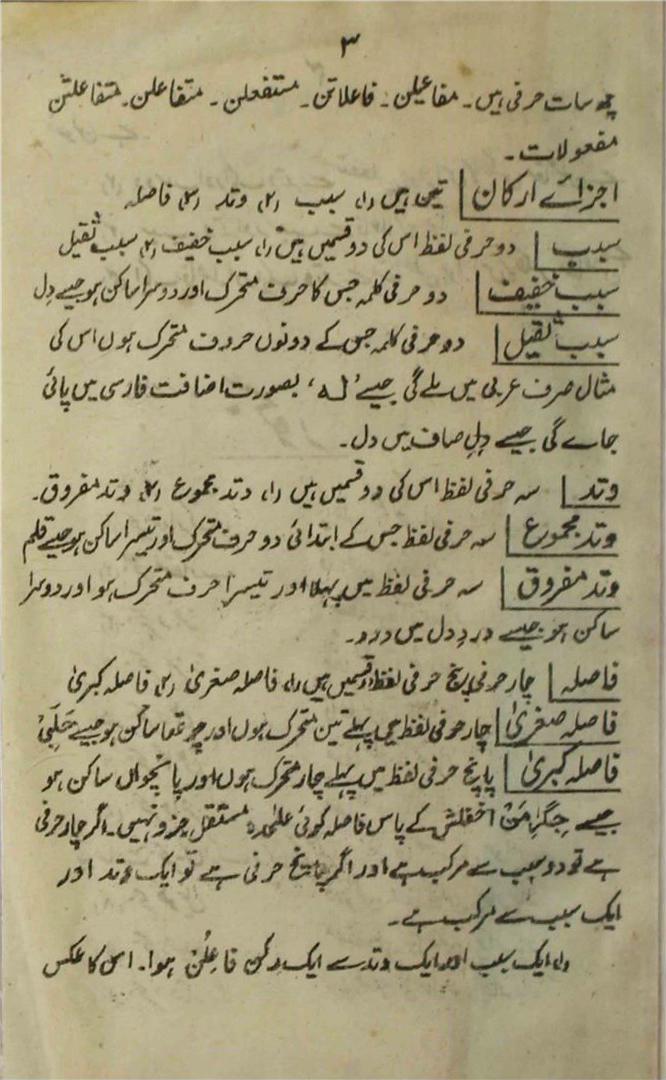 ۳
چھ سات حرفی ہیں۔ مفاعیلن۔ فاعلاتن۔ مستفعلن۔ متفاعلن۔ متفاعلتن
مفعولات۔
اجزائے ارکان تین ہیں (۱) سبب (۲) وتد (۳) فاصلہ
سبب دو حرفی لفظ اس کی دو قسمیں ہیں (۱) سبب خفیف (۲) سبب ثقیل
سبب خفیف دو حرفی کلمہ جس کا حرف متحرک اور دوسرا ساکن ہو جیسے دِل
سبب ثقیل دو حرفی کلمہ جس کے دونوں حروف متحرک ہوں اس کی
مثال صرف عربی میں ملے گی جیسے 'لہ' بصورت اضافت فارسی میں پائی
جاے گی جیسے دِلِ صاف میں دل۔
وتد سہ حرفی لفظ اس کی دو قسمیں ہیں (۱) وتد مجموع (۲) وتد مفروق۔
وتد مجموع سہ حرفی لفظ جس کے ابتدائی دو حرف متحرک اور تیسرا ساکن ہو جیسے قلم
وتد مفروق سہ حرفی لفظ میں پہلا اور تیسرا حرف متحرک ہو اور دوسرا
ساکن ہو جیسے دردِ دل میں درد۔
فاصلہ چار حرفی پانچ حرفی لفظ قسمیں ہیں (۱) فاصلہ صغریٰ (۲) فاصلہ کبریٰ
فاصلہ صغریٰ چار حرفی لفظ میں پہلے تین متحرک ہوں اور چوتھا ساکن ہو جیسے حَلَبِیْ
فاصلہ کبریٰ پانچ حرفی لفظ میں پہلے چار متحرک ہوں اور پانچواں ساکن ہو
جیسے جِگَرِ مَنْ اخفش کے پاس فاصلہ کوئی علٰحدہ مستقل جزو نہیں۔ اگر چار حرفی
ہے تو دو سبب سے مرکب ہے اور اگر پانچ حرفی ہے تو ایک وتد اور
ایک سبب سے مرکب ہے۔
(۱) ایک سبب اور ایک وتد سے ایک رکن فاعِلُن ہوا۔ اس کا عکس